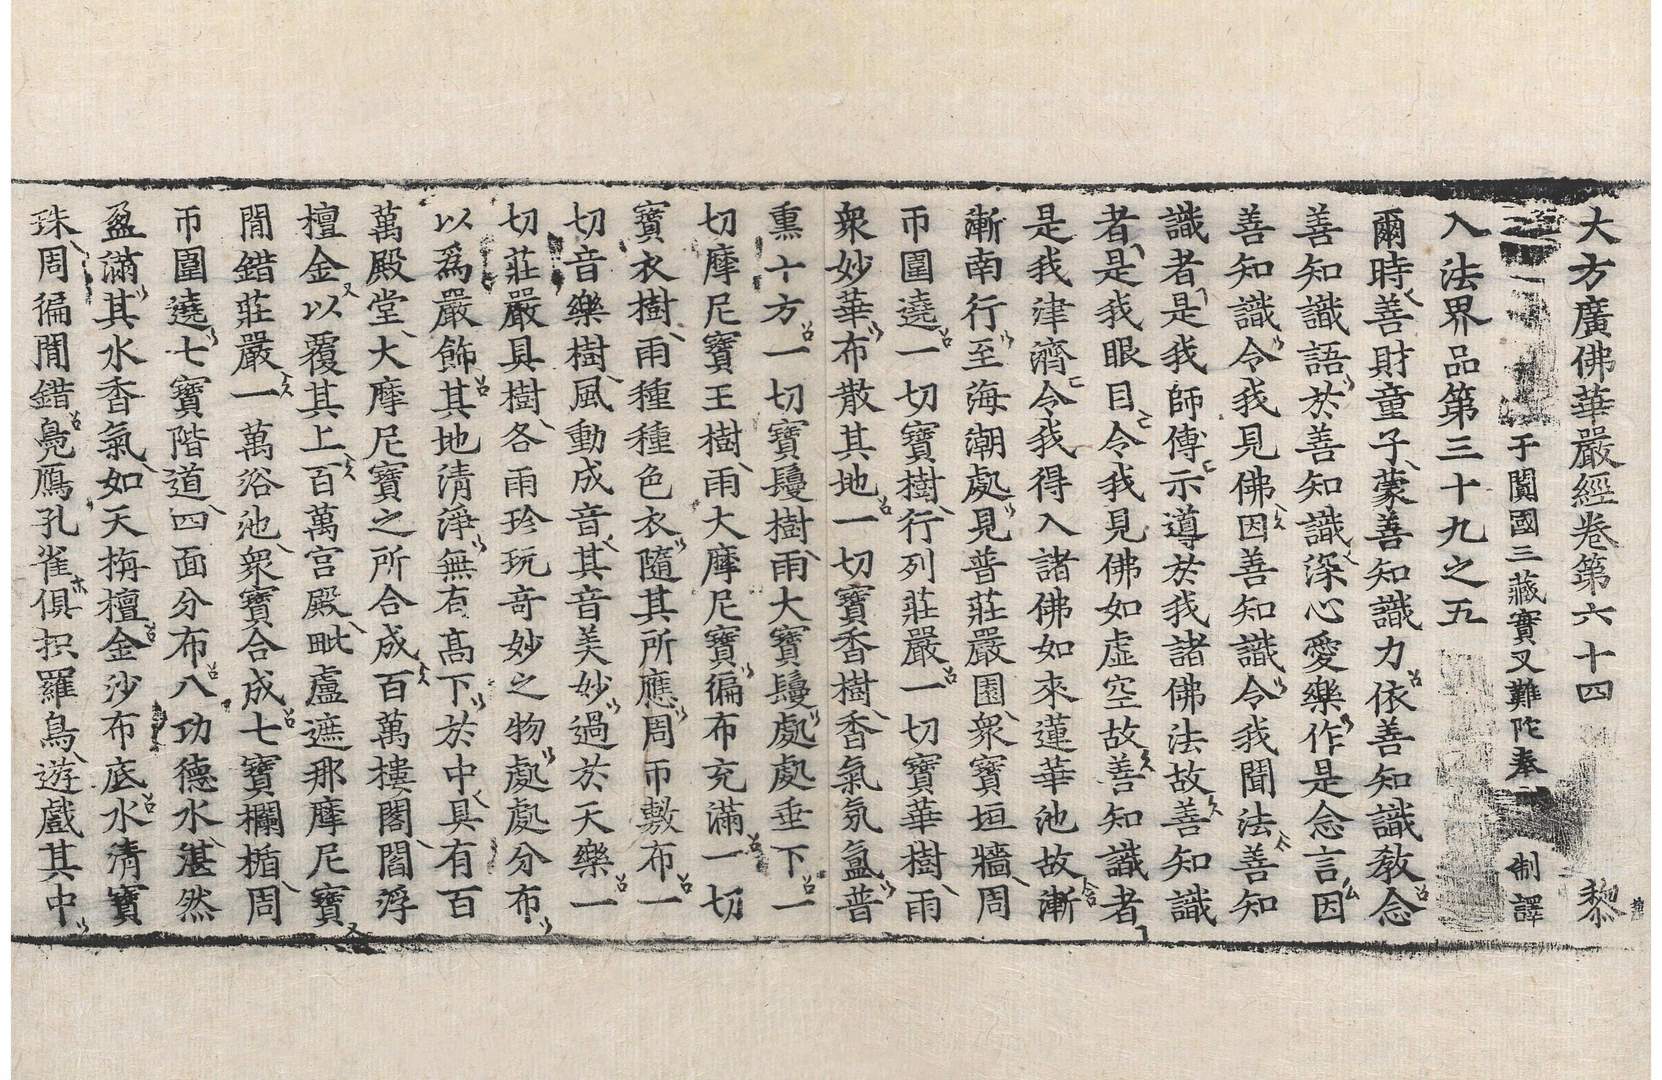 大方廣佛華嚴經卷第六十四 黎
于闐國三藏實叉難陀奉 制譯
入法界品第三十九之五
爾時善財童子蒙善知識力依善知識教念
善知識語於善知識深心愛樂作是念言因
善知識令我見佛因善知識令我聞法善知
識者是我師傅示導於我諸佛法故善知識
者是我眼目令我見佛如虛空故善知識者
是我津濟令我得入諸佛如來蓮華池故漸
漸南行至海潮處見普莊嚴園衆寶垣牆周
帀圍遶一切寶樹行列莊嚴一切寶華樹雨
衆妙華布散其地一切寶香樹香氣氛氳普
熏十方一切寶鬘樹雨大寶鬘處處垂下一
切摩尼寶王樹雨大摩尼寶徧布充滿一切
寶衣樹雨種種色衣隨其所應周帀敷布一
切音樂樹風動成音其音美妙過於天樂一
切莊嚴具樹各雨珍玩奇妙之物處處分布
以爲嚴飾其地清淨無有高下於中具有百
萬殿堂大摩尼寶之所合成百萬樓閣閻浮
檀金以覆其上百萬宮殿毗盧遮那摩尼寶
閒錯莊嚴一萬浴池衆寶合成七寶欄楯周
帀圍遶七寶階道四面分布八功德水湛然
盈滿其水香氣如天栴檀金沙布底水清寶
珠周徧閒錯鳧鴈孔雀俱枳羅鳥遊戲其中